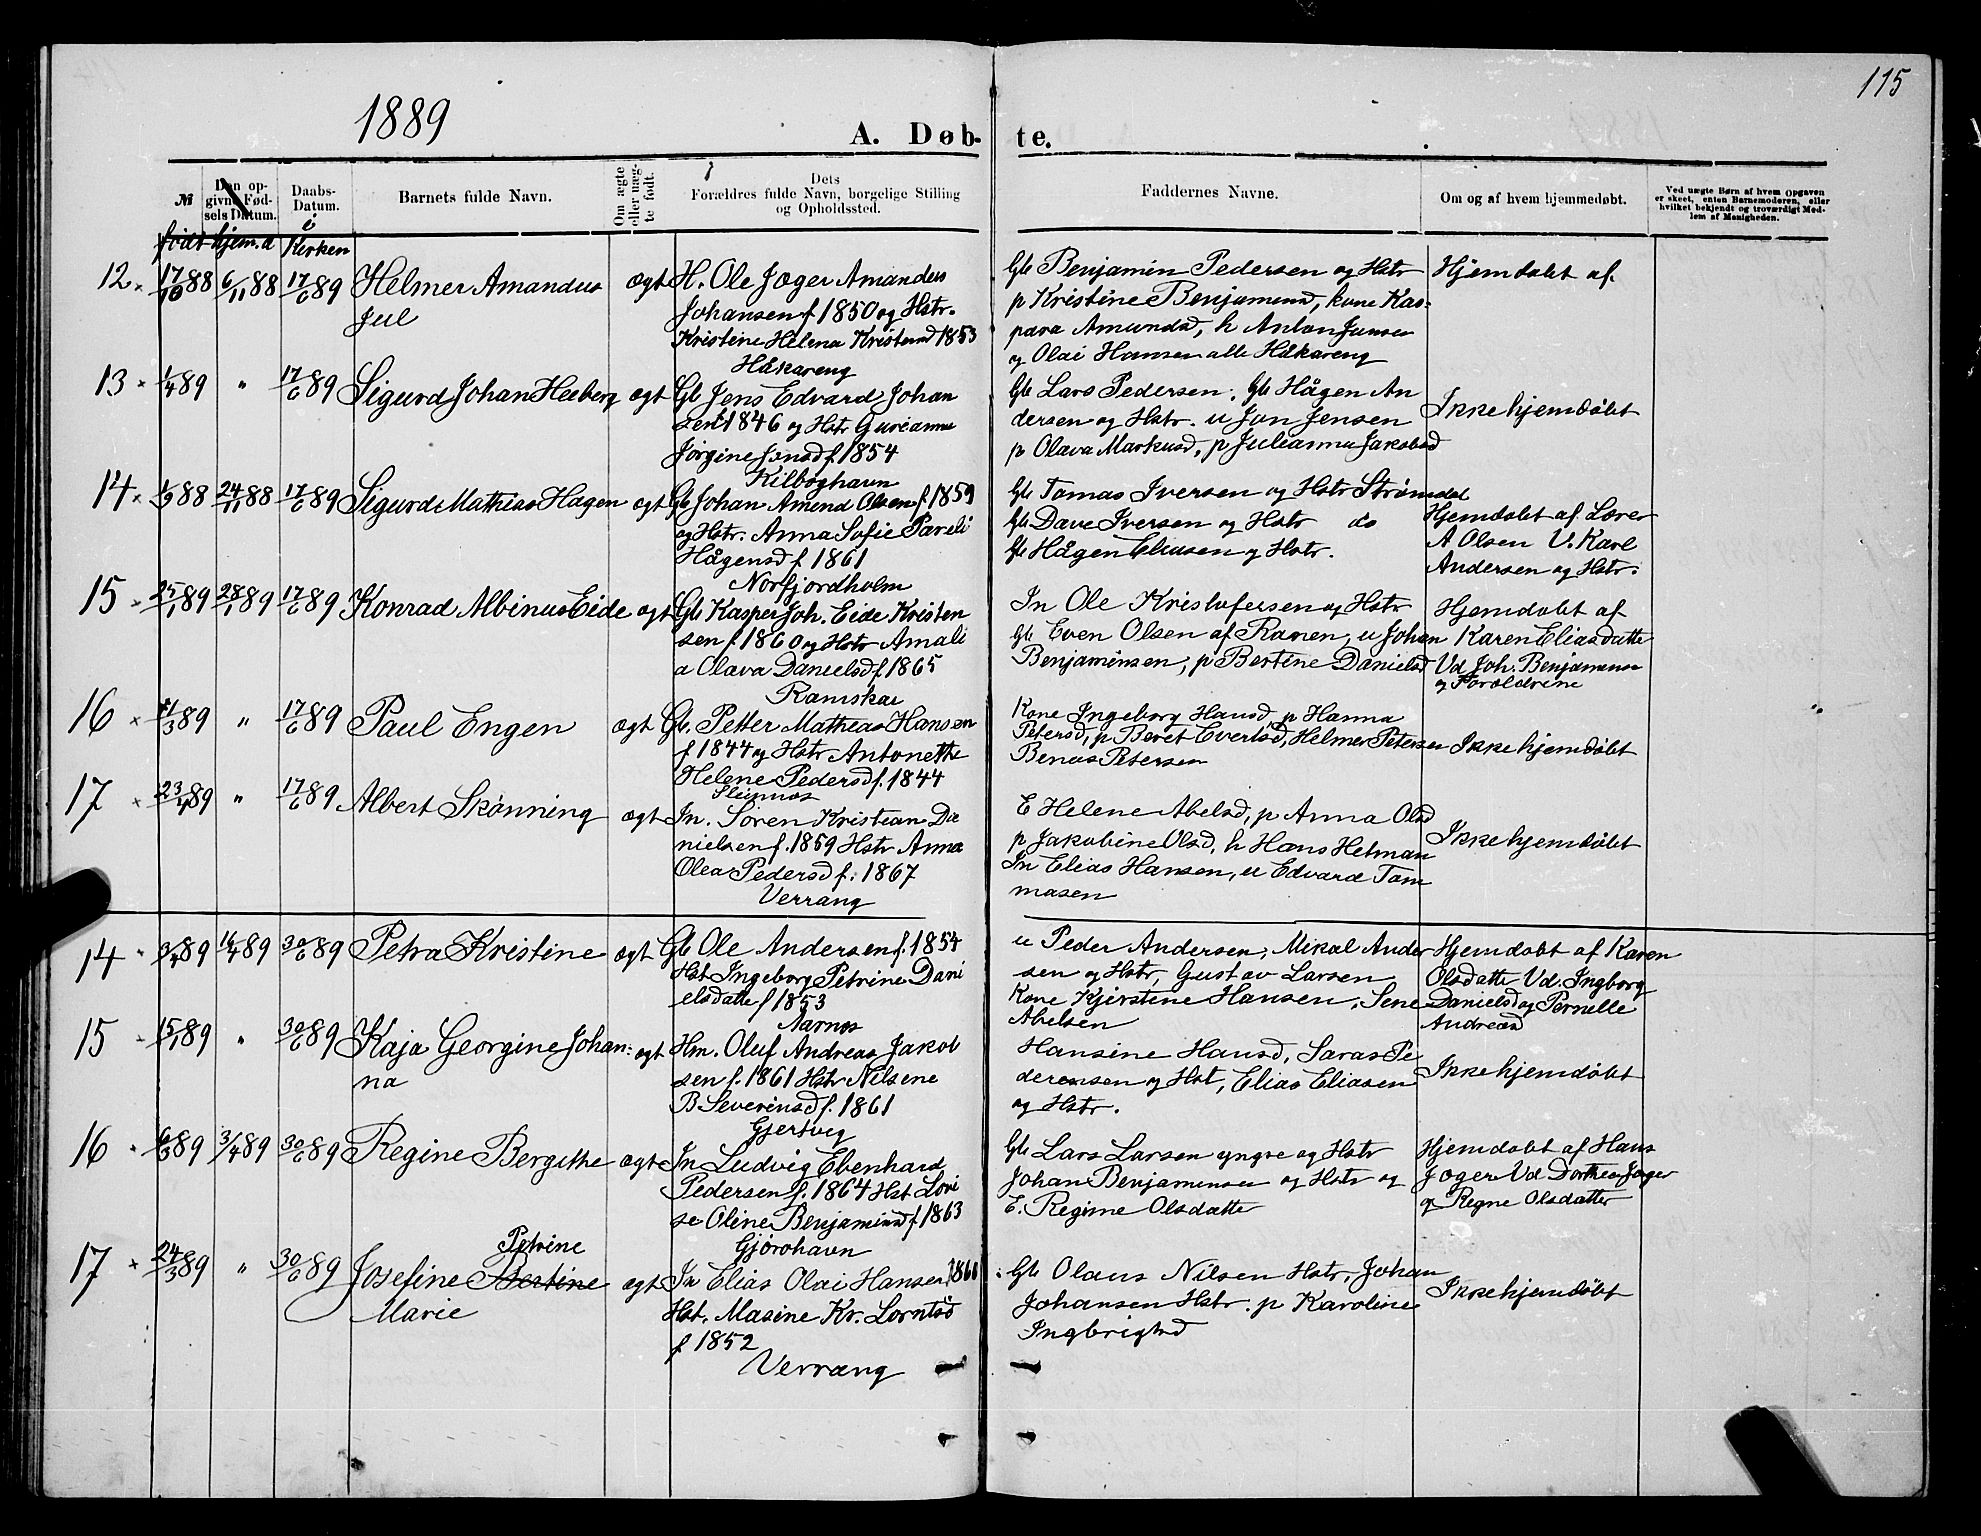 115
1889
A. Døbte.
№
Den opgivne Fødsels Datum.
Daabs-Datum.
Barnets fulde Navn.
Om ægte eller uægte født.
Dets Forældres fulde Navn, borgelige Stilling og Opholdssted.
Faddernes Navne.
Om og af hvem hjemmedøbt.
Ved uægte Børn af hvem Opgaven er skeet, enten Barnemoderen, eller hvilket bekjendt og troværdigt Medlem af Menigheden.
født hjem.d i Kirken
12 17/10 88 6/11 88 17/6 89 Helmer Amandus
Jul
ægt H. Ole Jæger Amandus
Johansen f 1850 og Hstr.
Kristine Helena Kristensd 1853
Håkareng
Gb Benjamin Pedersen og Hstr
p Kristine Benjaminsd, kone Kas-
para Amundsd, h Anton Jensen
og Olai Hansen alle Håkareng
Hjemdøbt af
13 1/4 89 " 17/6 89 Sigurd Johan Heeberg
ægt Gb Jens Edvard Johan
sen f 1846 og Hstr Gureanna
Jørgine Jensd f. 1854
Kilboghavn
Gb Lars Pedersen, Gb Hågen An
dersen og Hstr. u Jon Jensen
p Olava Markusd, p Julianna Jakobsd
Ikke hjemdøbt
14 1/9 88 24/11 88 17/6 89 Sigurd Mathias Hagen
ægt Gb Johan Amend Olsen f. 1859
og Hstr. Anna Sofie Pareli
Hågensd f. 1861
Norfjordholm
Gb Tomas Iversen og Hstr Strømdal
Gb Dave Iversen og Hstr do
Gb Hågen Eliasen og Hstr.
Hjemdøbt af Lærer
A Olsen V. Karl
Andersen og Hstr.
15 25/1 89 28/1 89 17/6 89 Konrad Albinus Eide
ægt Gb Kasper Joh. Eide Kristen
sen f. 1860 og Hstr Amali
a Olava Danielsd f. 1865
Ramskar
In Ole Kristofersen og Hstr
Gb Even Olsen af Ranen, u Johan
Benjaminsen, p Bertine Danielsd
Hjemdøbt af
Karen Eliasdatte
Vd Joh. Benjaminsen
og Forældrene
16 /3 89 " 17/6 89 Paul Engen
ægt Gb. Petter Mathias Hansen
f 1844 og Hstr Antonette
Helene Pedersd f. 1844
Kone Ingeborg Hansd, p Hanna
Petersd, p Beret Evertsd, Helmer Petersen
Benas Petersen
Ikke hjemdøbt
17 23/4 89 " 17/6 89 Albert Skønning
ægt In. Søren Kristian Da
nielsen f. 1859 Hstr Anna
Olea Pedersd f: 1867
Verrang
E Helene Abelsd, p Anna Olsd
p Jakobine Olsd, h Hans Hetman
In Elias Hansen, u Edvard Tom
masen
Ikke hjemdøbt
14 3/4 89 16/4 89 30/6 89 Petra Kristine
ægt Gb Ole Andersen f. 1854
Hst Ingeborg Petrine Dani
elsdatte f 1853
Aarnes
u Peder Andersen, Mikal Ander
sen og Hstr, Gustav Larsen
Kone Kjerstine Hansen, Sene
Abelsen
Hjemdøbt af Karen
Olsdatte Vd. Ingborg
Danielsd og Pernelle
Andreasd
15 15/1 89 " 30/6 89 Kaja Georgine Johan:
na
ægt Hm. Oluf Andreas Jakob
sen f. 1861 Hstr Nilsene
B Severinsd f. 1861
Gjertvig
Hansine Hansd, Saras Pe
derensen og Hst, Elias Eliasen
og Hstr.
Ikke hjemdøbt
16 6/3 89 3/4 89 30/6 89 Regine Bergithe
ægt In Ludvig Ebenhard
Pedersen f. 1864 Hst Lovi
se Oline Benjaminsd f 1863
Gjørohavn
Gb Lars Larsen yngre og Hstr
Johan Benjaminsen og Hstr og
E. Regime Olsdatte
Hjemdøbt af Hans
Jæger Vd Dorthea Jæger
og Regne Olsdatter
Petrine
17 24/3 89 " 30/6 89 Josefine Bertine
Marie
ægt In Elias Olai Hansen 1860
Hst. Masine Kr. Lorntsd
f. 1852
Verrang
Gb Olaus Nilsen Hstr, Johan
Johansen Hstr. p Karoline
Ingbrigtsd
Ikke hjemdøbt